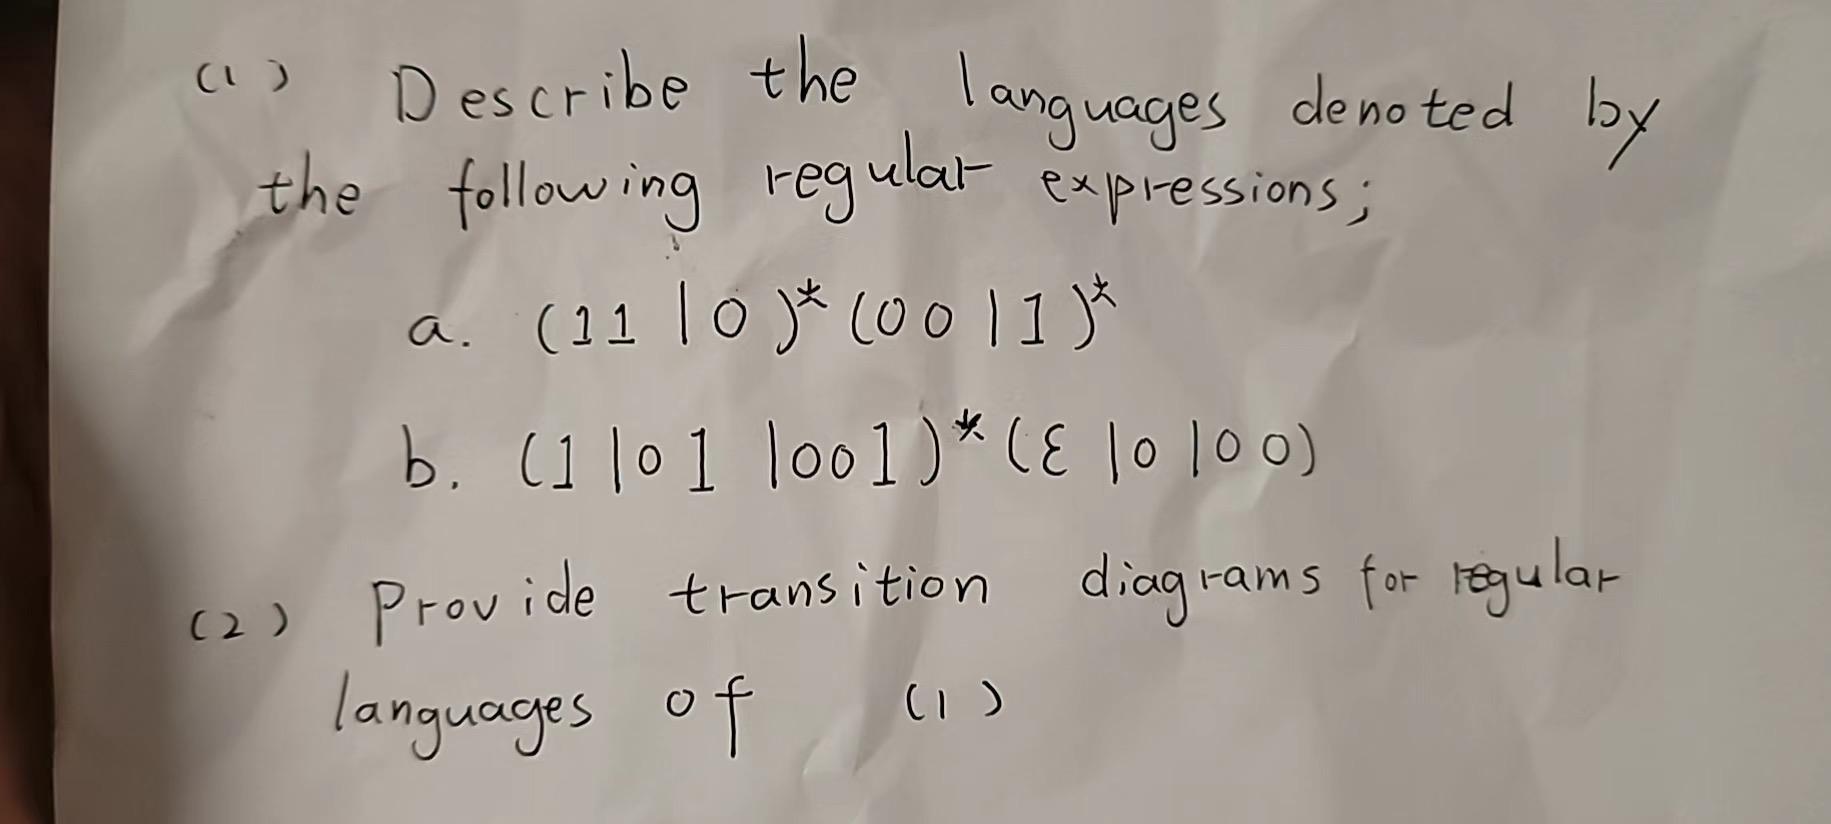 (1) Describe the languages denoted by
the following regular expressions;
a. (11 | 0)* (00 | 1)*
b. (1 | 01 | 001)* (ε | 0 | 00)
(2) Provide transition diagrams for regular
languages of (1)